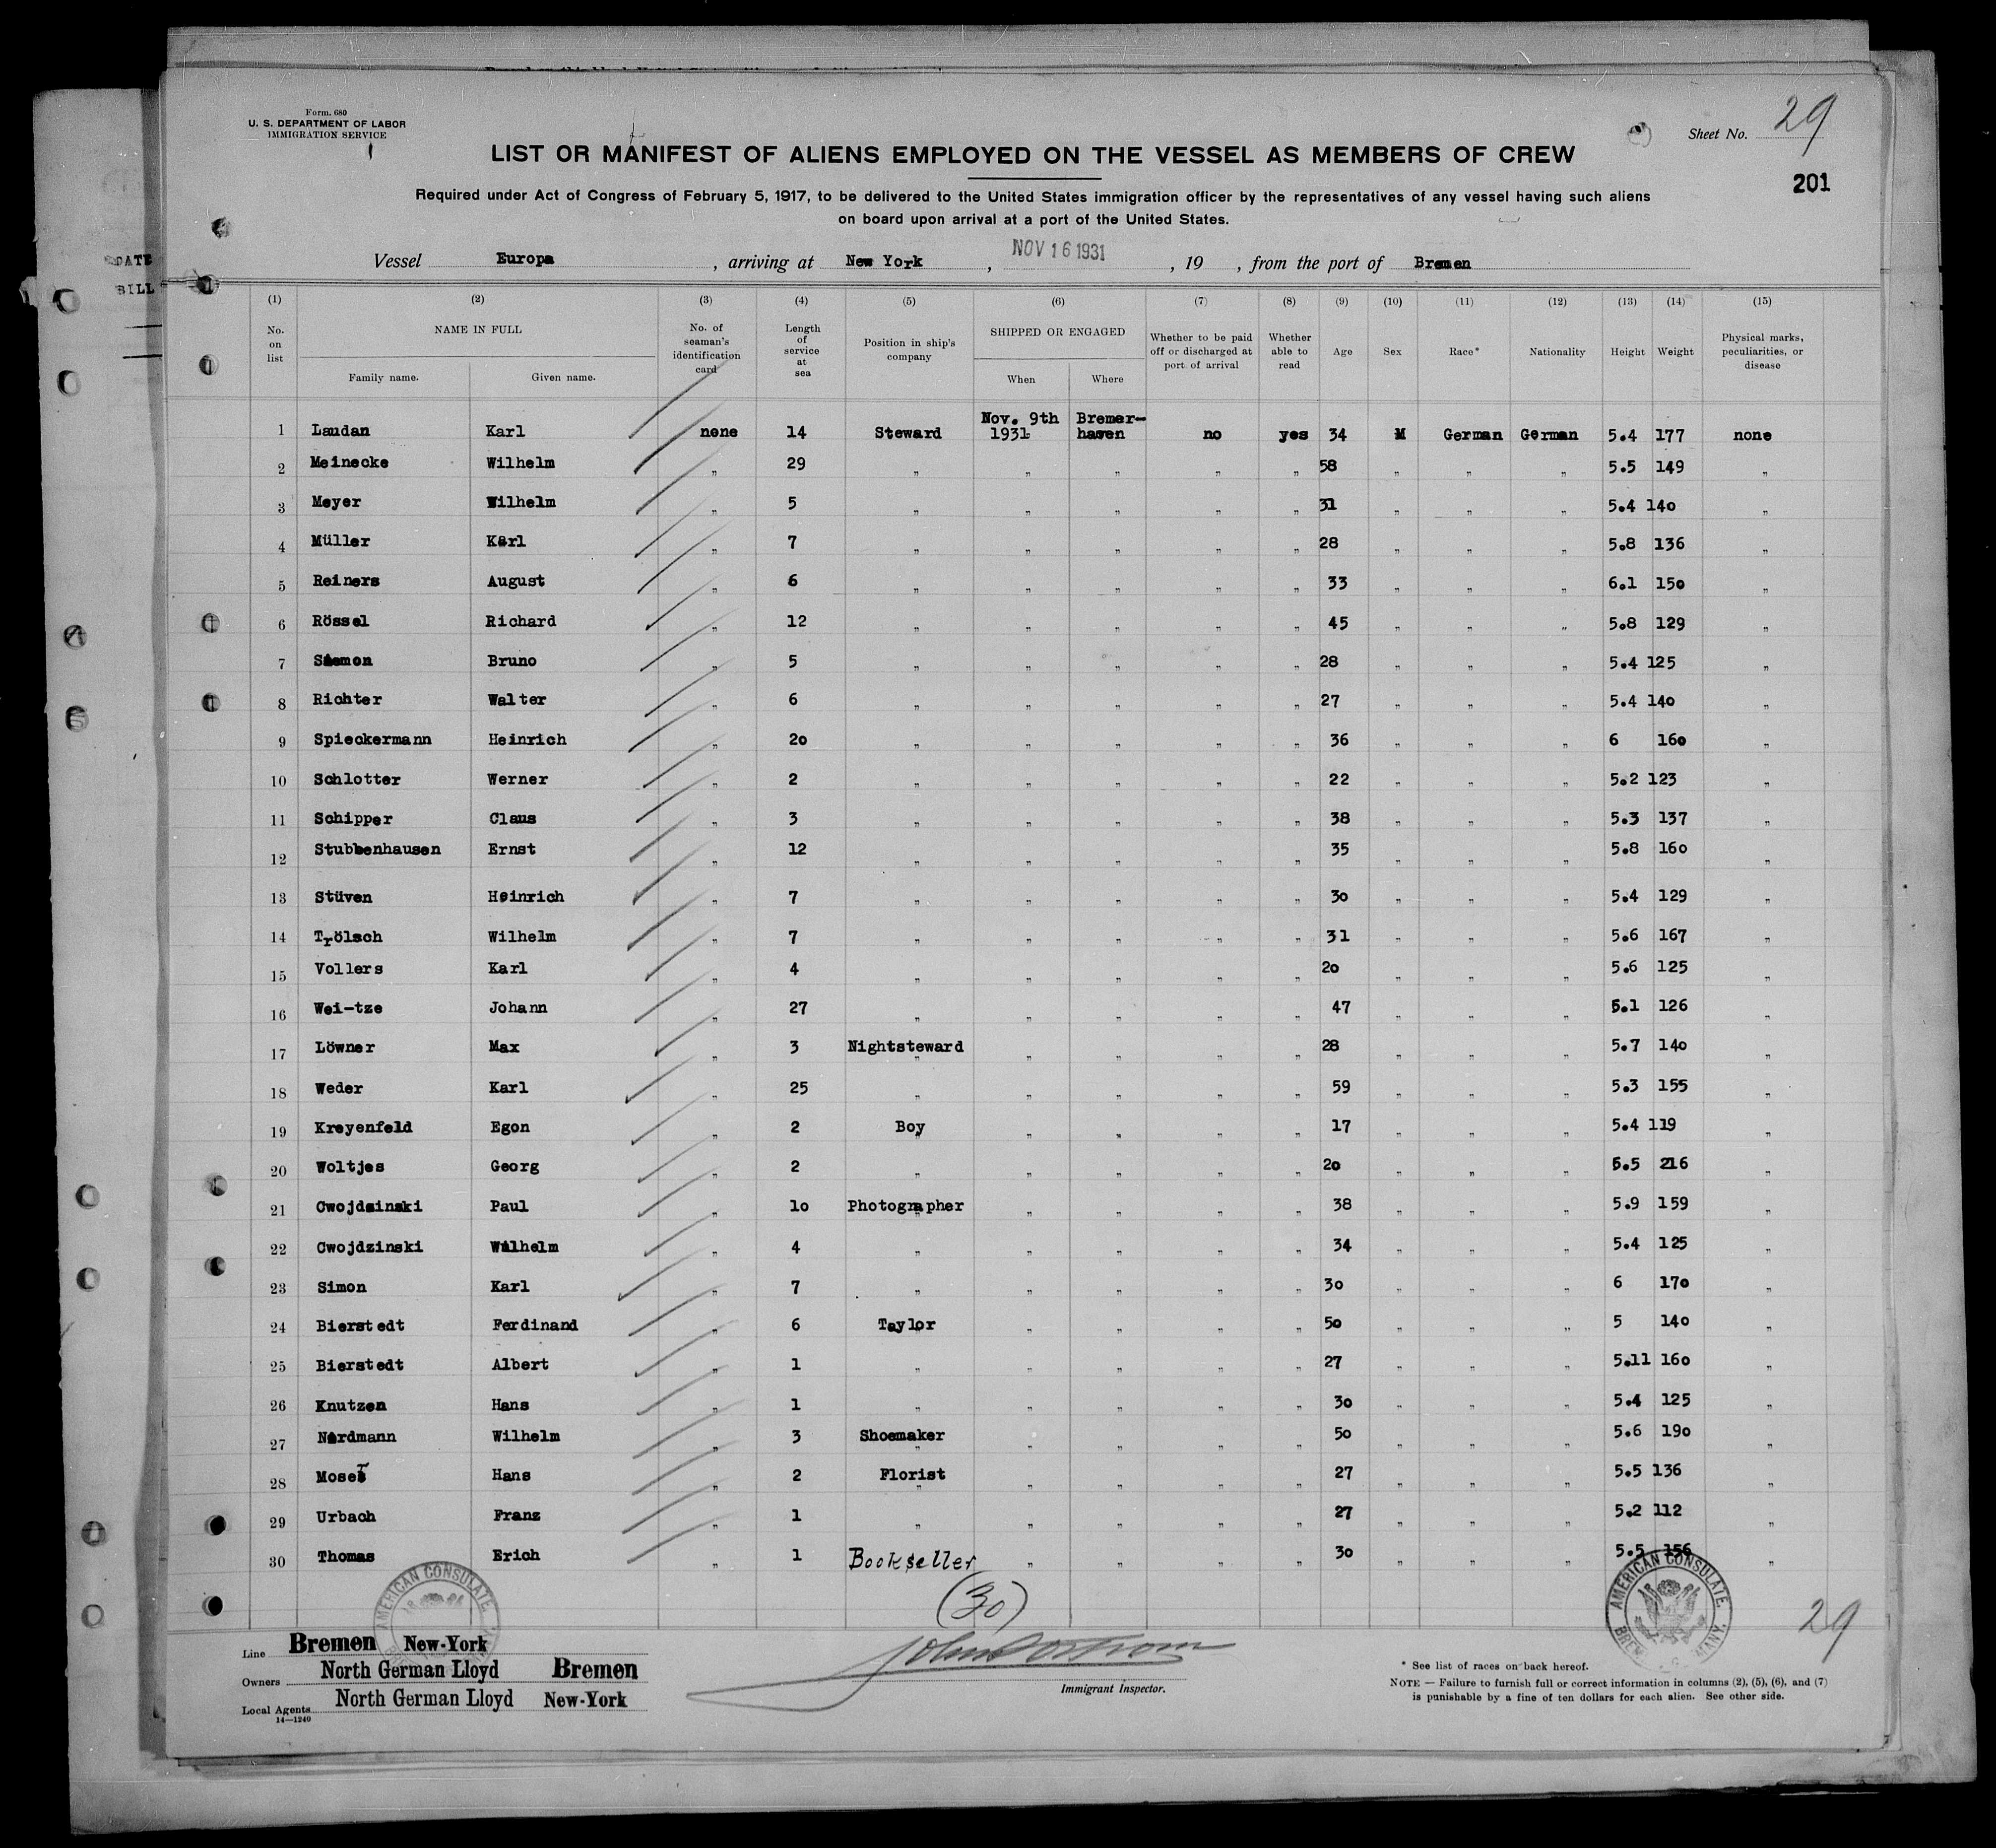 Form. 680
U. S. DEPARTMENT OF LABOR
IMMIGRATION SERVICE
Sheet No. 29
LIST OR MANIFEST OF ALIENS EMPLOYED ON THE VESSEL AS MEMBERS OF CREW
201
Required under Act of Congress of February 5, 1917, to be delivered to the United States immigration officer by the representatives of any vessel having such aliens
on board upon arrival at a port of the United States.
DATE
BILL
Vessel Europa , arriving at New York , NOV 16 1931 , 19 , from the port of Bremen
(1) (2) (3) (4) (5) (6) (7) (8) (9) (10) (11) (12) (13) (14) (15)
No. on list NAME IN FULL Family name. Given name. No. of seaman's identification card Length of service at sea Position in ship's company SHIPPED OR ENGAGED When Where Whether to be paid off or discharged at port of arrival Whether able to read Age Sex Race* Nationality Height Weight Physical marks, peculiarities, or disease
1 Laudan Karl none 14 Steward Nov. 9th 1931 Bremerhaven no yes 34 M German German 5.4 177 none
2 Meinecke Wilhelm „ 29 „ „ „ „ „ 58 „ „ „ 5.5 149 „
3 Meyer Wilhelm „ 5 „ „ „ „ „ 31 „ „ „ 5.4 140 „
4 Müller Karl „ 7 „ „ „ „ „ 28 „ „ „ 5.8 136 „
5 Reiners August „ 6 „ „ „ „ „ 33 „ „ „ 6.1 150 „
6 Rössel Richard „ 12 „ „ „ „ „ 45 „ „ „ 5.8 129 „
7 Siemon Bruno „ 5 „ „ „ „ „ 28 „ „ „ 5.4 125 „
8 Richter Walter „ 6 „ „ „ „ „ 27 „ „ „ 5.4 140 „
9 Spieckermann Heinrich „ 20 „ „ „ „ „ 36 „ „ „ 6 160 „
10 Schlotter Werner „ 2 „ „ „ „ „ 22 „ „ „ 5.2 123 „
11 Schipper Claus „ 3 „ „ „ „ „ 38 „ „ „ 5.3 137 „
12 Stubbenhausen Ernst „ 12 „ „ „ „ „ 35 „ „ „ 5.8 160 „
13 Stüven Heinrich „ 7 „ „ „ „ „ 30 „ „ „ 5.4 129 „
14 Trölsch Wilhelm „ 7 „ „ „ „ „ 31 „ „ „ 5.6 167 „
15 Vollers Karl „ 4 „ „ „ „ „ 20 „ „ „ 5.6 125 „
16 Wei-tze Johann „ 27 „ „ „ „ „ 47 „ „ „ 5.1 126 „
17 Löwner Max „ 3 Nightsteward „ „ „ „ 28 „ „ „ 5.7 140 „
18 Weder Karl „ 25 „ „ „ „ „ 59 „ „ „ 5.3 155 „
19 Kreyenfeld Egon „ 2 Boy „ „ „ „ 17 „ „ „ 5.4 119 „
20 Woltjes Georg „ 2 „ „ „ „ „ 20 „ „ „ 5.5 216 „
21 Cwojdzinski Paul „ 10 Photographer „ „ „ „ 38 „ „ „ 5.9 159 „
22 Cwojdzinski Wilhelm „ 4 „ „ „ „ „ 34 „ „ „ 5.4 125 „
23 Simon Karl „ 7 „ „ „ „ „ 30 „ „ „ 6 170 „
24 Bierstedt Ferdinand „ 6 Taylor „ „ „ „ 50 „ „ „ 5 140 „
25 Bierstedt Albert „ 1 „ „ „ „ „ 27 „ „ „ 5.11 160 „
26 Knutzen Hans „ 1 „ „ „ „ „ 30 „ „ „ 5.4 125 „
27 Nordmann Wilhelm „ 3 Shoemaker „ „ „ „ 50 „ „ „ 5.6 190 „
28 Moser Hans „ 2 Florist „ „ „ „ 27 „ „ „ 5.5 136 „
29 Urbach Franz „ 1 „ „ „ „ „ 27 „ „ „ 5.2 112 „
30 Thomas Erich „ 1 Bookseller „ „ „ „ 30 „ „ „ 5.5 156 „
(30)
AMERICAN CONSULATE.
AMERICAN CONSULATE.
29
Line Bremen New-York
Owners North German Lloyd Bremen
Local Agents North German Lloyd New-York
14—1240
Immigrant Inspector.
* See list of races on back hereof.
NOTE — Failure to furnish full or correct information in columns (2), (5), (6), and (7)
is punishable by a fine of ten dollars for each alien. See other side.